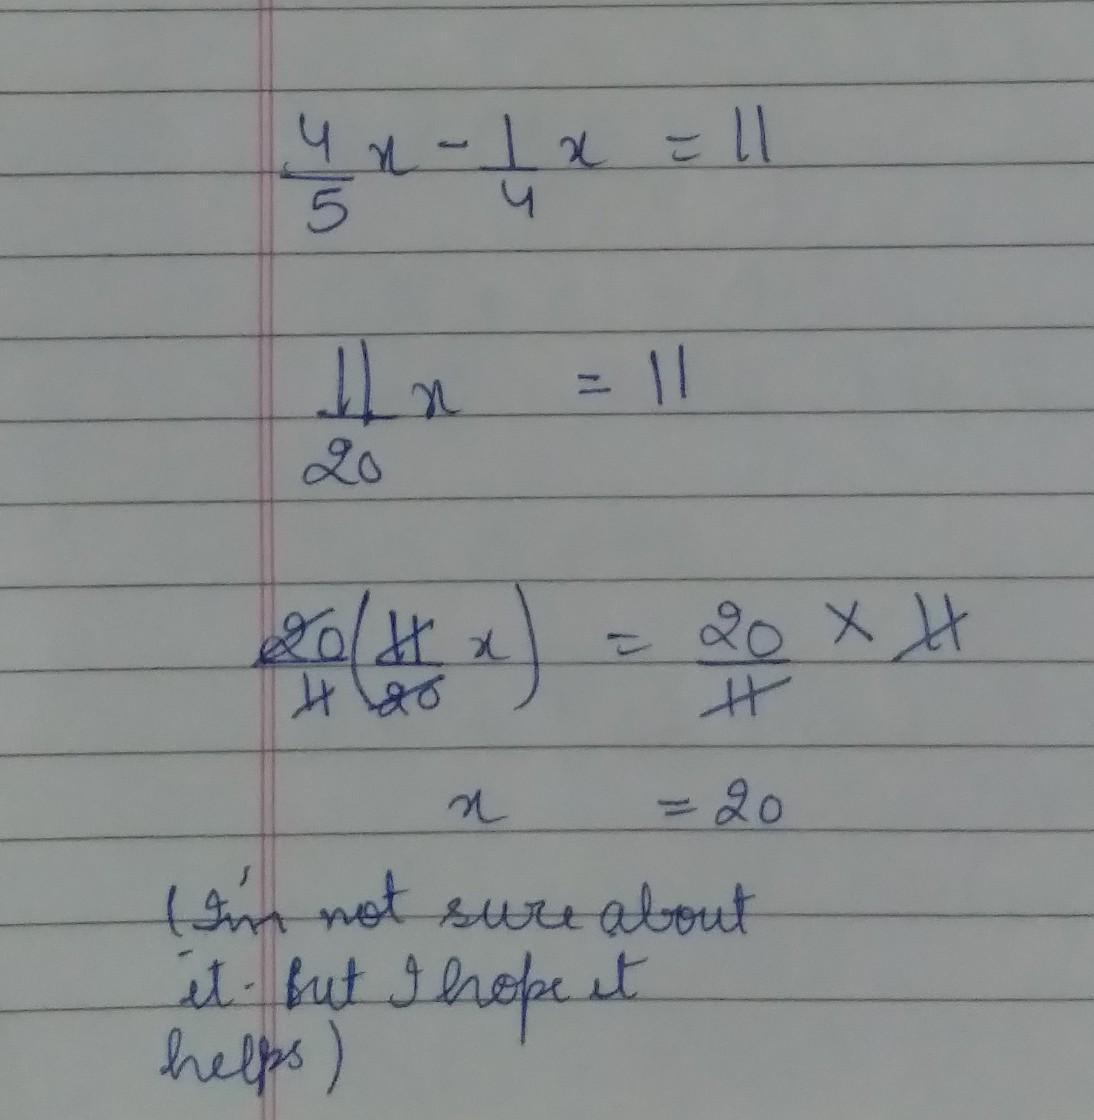 4/5 x - 1/4 x = 11
11/20 x = 11
20/11 (11/20 x) = 20/11 × 11
x = 20
(I'm not sure about
it. But I hope it
helps)